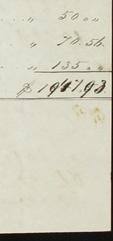 " 50 " "
" 70.56
" 135 " "
$ 1947.93